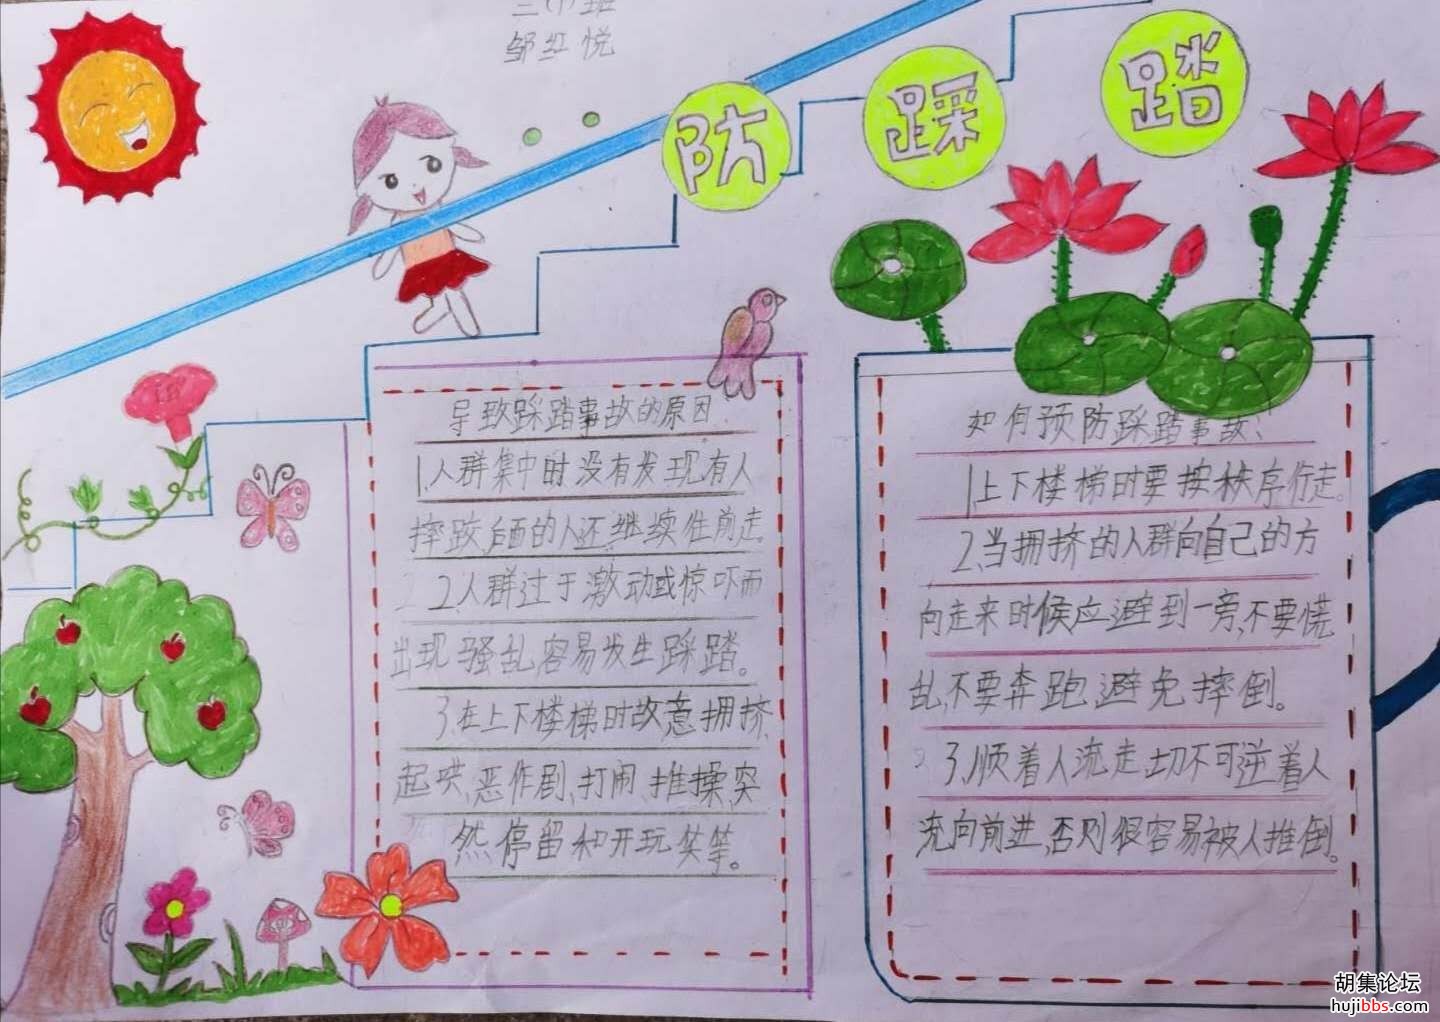 邹红悦
防踩踏
导致踩踏事故的原因
1.人群集中时没有发现有人
摔跤后面的人还继续往前走。
2.人群过于激动或惊吓而
出现骚乱容易发生踩踏。
3.在上下楼梯时故意拥挤、
起哄、恶作剧、打闹、推搡、突
然停留和开玩笑等。
如何预防踩踏事故?
1.上下楼梯时要按秩序行走。
2、当拥挤的人群向自己的方
向走来时候应避到一旁,不要慌
乱,不要奔跑,避免摔倒。
3、顺着人流走切不可逆着人
流向前进,否则很容易被人推倒。
胡集论坛
hujibbs.com